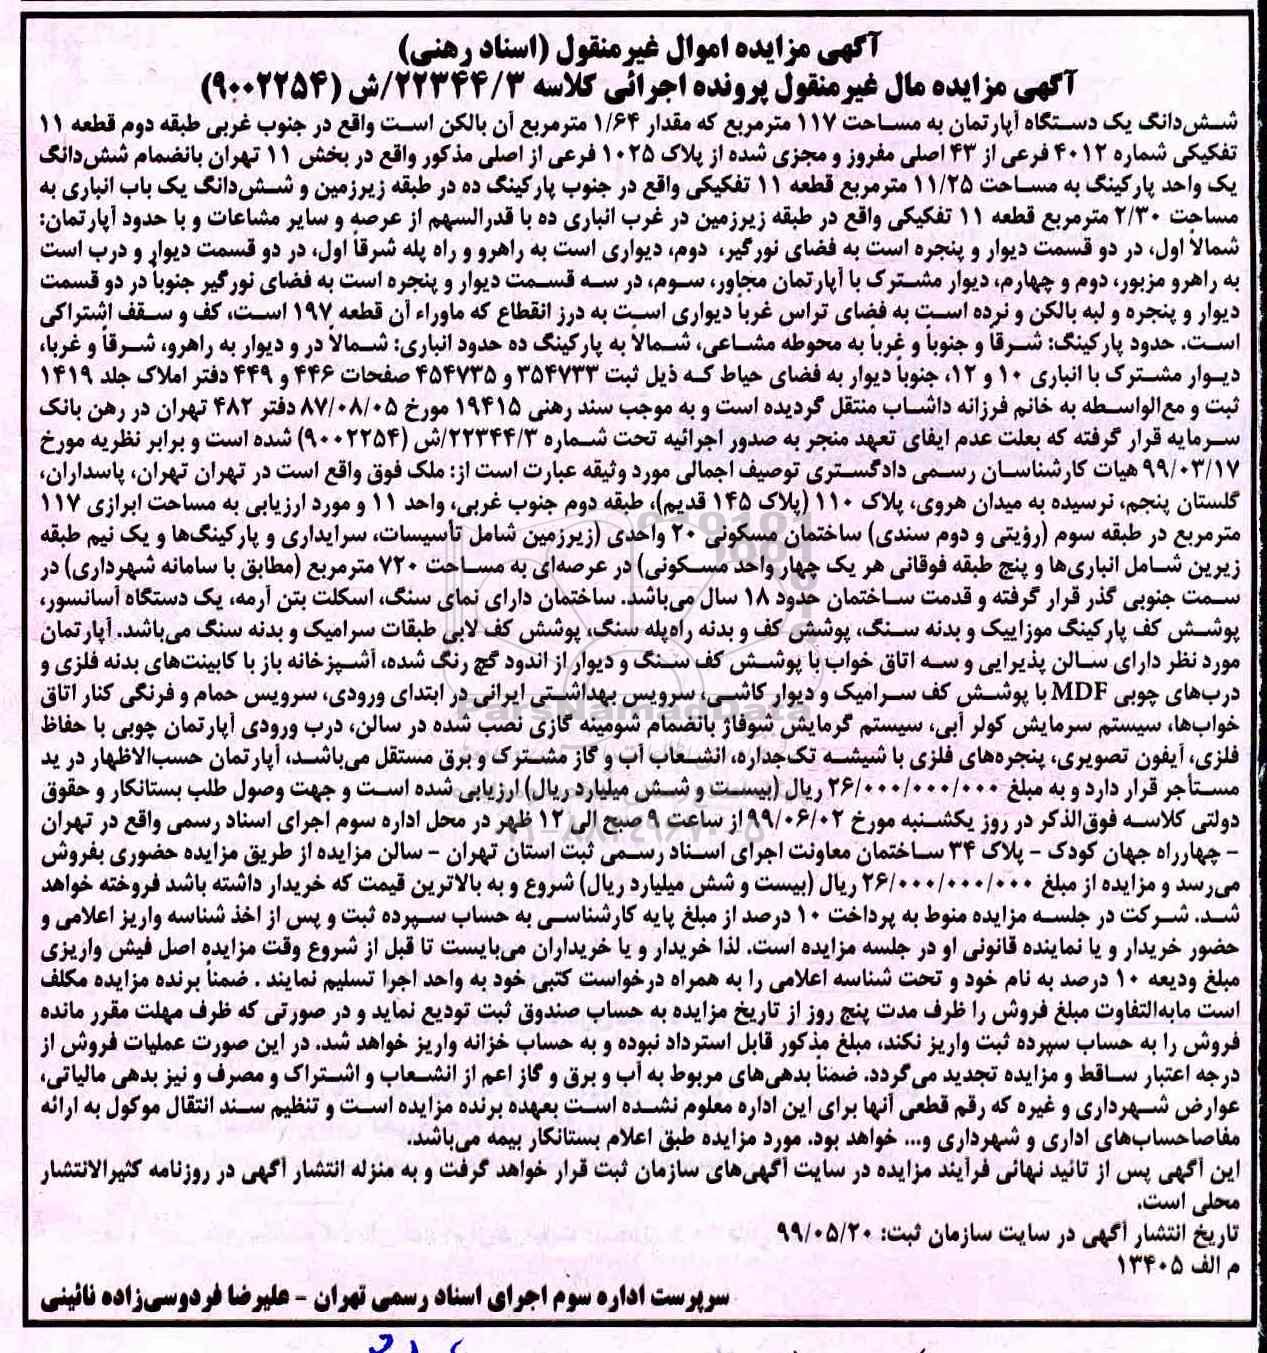 آگهی مزایده اموال غیرمنقول (اسناد رهنی)
آگهی مزایده مال غیرمنقول پرونده اجرائی کلاسه ۲۲۳۴۴/۳/ش (۹۰۰۲۲۵۴)
شش‌دانگ یک دستگاه آپارتمان به مساحت ۱۱۷ مترمربع که مقدار ۱/۶۴ مترمربع آن بالکن است واقع در جنوب غربی طبقه دوم قطعه ۱۱
تفکیکی شماره ۴۰۱۲ فرعی از ۴۳ اصلی مفروز و مجزی شده از پلاک ۱۰۲۵ فرعی از اصلی مذکور واقع در بخش ۱۱ تهران بانضمام شش‌دانگ
یک واحد پارکینگ به مساحت ۱۱/۲۵ مترمربع قطعه ۱۱ تفکیکی واقع در جنوب پارکینگ ده در طبقه زیرزمین و شش‌دانگ یک باب انباری به
مساحت ۲/۳۰ مترمربع قطعه ۱۱ تفکیکی واقع در طبقه زیرزمین در غرب انباری ده با قدرالسهم از عرصه و سایر مشاعات و با حدود آپارتمان:
شمالاً اول، در دو قسمت دیوار و پنجره است به فضای نورگیر، دوم، دیواری است به راهرو و راه پله شرقاً اول، در دو قسمت دیوار و درب است
به راهرو مزبور، دوم و چهارم، دیوار مشترک با آپارتمان مجاور، سوم، در سه قسمت دیوار و پنجره است به فضای نورگیر جنوباً در دو قسمت
دیوار و پنجره و لبه بالکن و نرده است به فضای تراس غرباً دیواری است به درز انقطاع که ماوراء آن قطعه ۱۹۷ است، کف و سقف اشتراکی
است. حدود پارکینگ: شرقاً و جنوباً و غرباً به محوطه مشاعی، شمالاً به پارکینگ ده حدود انباری: شمالاً در و دیوار به راهرو، شرقاً و غربا،
دیوار مشترک با انباری ۱۰ و ۱۲، جنوباً دیوار به فضای حیاط که ذیل ثبت ۳۵۴۷۳۳ و ۴۵۴۷۳۵ صفحات ۴۴۶ و ۴۴۹ دفتر املاک جلد ۱۴۱۹
ثبت و مع‌الواسطه به خانم فرزانه داشاب منتقل گردیده است و به موجب سند رهنی ۱۹۴۱۵ مورخ ۸۷/۰۸/۰۵ دفتر ۴۸۲ تهران در رهن بانک
سرمایه قرار گرفته که بعلت عدم ایفای تعهد منجر به صدور اجرائیه تحت شماره ۲۲۳۴۴/۳/ش (۹۰۰۲۲۵۴) شده است و برابر نظریه مورخ
۹۹/۰۳/۱۷ هیات کارشناسان رسمی دادگستری توصیف اجمالی مورد وثیقه عبارت است از: ملک فوق واقع است در تهران تهران، پاسداران،
گلستان پنجم، نرسیده به میدان هروی، پلاک ۱۱۰ (پلاک ۱۴۵ قدیم)، طبقه دوم جنوب غربی، واحد ۱۱ و مورد ارزیابی به مساحت ابرازی ۱۱۷
مترمربع در طبقه سوم (رؤیتی و دوم سندی) ساختمان مسکونی ۲۰ واحدی (زیرزمین شامل تأسیسات، سرایداری و پارکینگ‌ها و یک نیم طبقه
زیرین شامل انباری‌ها و پنج طبقه فوقانی هر یک چهار واحد مسکونی) در عرصه‌ای به مساحت ۷۲۰ مترمربع (مطابق با سامانه شهرداری) در
سمت جنوبی گذر قرار گرفته و قدمت ساختمان حدود ۱۸ سال می‌باشد. ساختمان دارای نمای سنگ، اسکلت بتن آرمه، یک دستگاه آسانسور،
پوشش کف پارکینگ موزاییک و بدنه سنگ، پوشش کف و بدنه راه‌پله سنگ، پوشش کف لابی طبقات سرامیک و بدنه سنگ می‌باشد. آپارتمان
مورد نظر دارای سالن پذیرایی و سه اتاق خواب با پوشش کف سنگ و دیوار از اندود گچ رنگ شده، آشپزخانه باز با کابینت‌های بدنه فلزی و
درب‌های چوبی MDF با پوشش کف سرامیک و دیوار کاشی، سرویس بهداشتی ایرانی در ابتدای ورودی، سرویس حمام و فرنگی کنار اتاق
خواب‌ها، سیستم سرمایش کولر آبی، سیستم گرمایش شوفاژ بانضمام شومینه گازی نصب شده در سالن، درب ورودی آپارتمان چوبی با حفاظ
فلزی، آیفون تصویری، پنجره‌های فلزی با شیشه تک‌جداره، انشعاب آب و گاز مشترک و برق مستقل می‌باشد، آپارتمان حسب‌الاظهار در ید
مستأجر قرار دارد و به مبلغ ۲۶/۰۰۰/۰۰۰/۰۰۰ ریال (بیست و شش میلیارد ریال) ارزیابی شده است و جهت وصول طلب بستانکار و حقوق
دولتی کلاسه فوق‌الذکر در روز یکشنبه مورخ ۹۹/۰۶/۰۲ از ساعت ۹ صبح الی ۱۲ ظهر در محل اداره سوم اجرای اسناد رسمی واقع در تهران
– چهارراه جهان کودک – پلاک ۳۴ ساختمان معاونت اجرای اسناد رسمی ثبت استان تهران – سالن مزایده از طریق مزایده حضوری بفروش
می‌رسد و مزایده از مبلغ ۲۶/۰۰۰/۰۰۰/۰۰۰ ریال (بیست و شش میلیارد ریال) شروع و به بالاترین قیمت که خریدار داشته باشد فروخته خواهد
شد. شرکت در جلسه مزایده منوط به پرداخت ۱۰ درصد از مبلغ پایه کارشناسی به حساب سپرده ثبت و پس از اخذ شناسه واریز اعلامی و
حضور خریدار و یا نماینده قانونی او در جلسه مزایده است. لذا خریدار و یا خریداران می‌بایست تا قبل از شروع وقت مزایده اصل فیش واریزی
مبلغ ودیعه ۱۰ درصد به نام خود و تحت شناسه اعلامی را به همراه درخواست کتبی خود به واحد اجرا تسلیم نمایند . ضمناً برنده مزایده مکلف
است مابه‌التفاوت مبلغ فروش را ظرف مدت پنج روز از تاریخ مزایده به حساب صندوق ثبت تودیع نماید و در صورتی که ظرف مهلت مقرر مانده
فروش را به حساب سپرده ثبت واریز نکند، مبلغ مذکور قابل استرداد نبوده و به حساب خزانه واریز خواهد شد. در این صورت عملیات فروش از
درجه اعتبار ساقط و مزایده تجدید می‌گردد. ضمناً بدهی‌های مربوط به آب و برق و گاز اعم از انشعاب و اشتراک و مصرف و نیز بدهی مالیاتی،
عوارض شهرداری و غیره که رقم قطعی آنها برای این اداره معلوم نشده است بعهده برنده مزایده است و تنظیم سند انتقال موکول به ارائه
مفاصاحساب‌های اداری و شهرداری و... خواهد بود. مورد مزایده طبق اعلام بستانکار بیمه می‌باشد.
این آگهی پس از تائید نهائی فرآیند مزایده در سایت آگهی‌های سازمان ثبت قرار خواهد گرفت و به منزله انتشار آگهی در روزنامه کثیرالانتشار
محلی است.
تاریخ انتشار آگهی در سایت سازمان ثبت: ۹۹/۰۵/۲۰
م الف ۱۳۴۰۵
سرپرست اداره سوم اجرای اسناد رسمی تهران – علیرضا فردوسی‌زاده نائینی
ParsNamadData